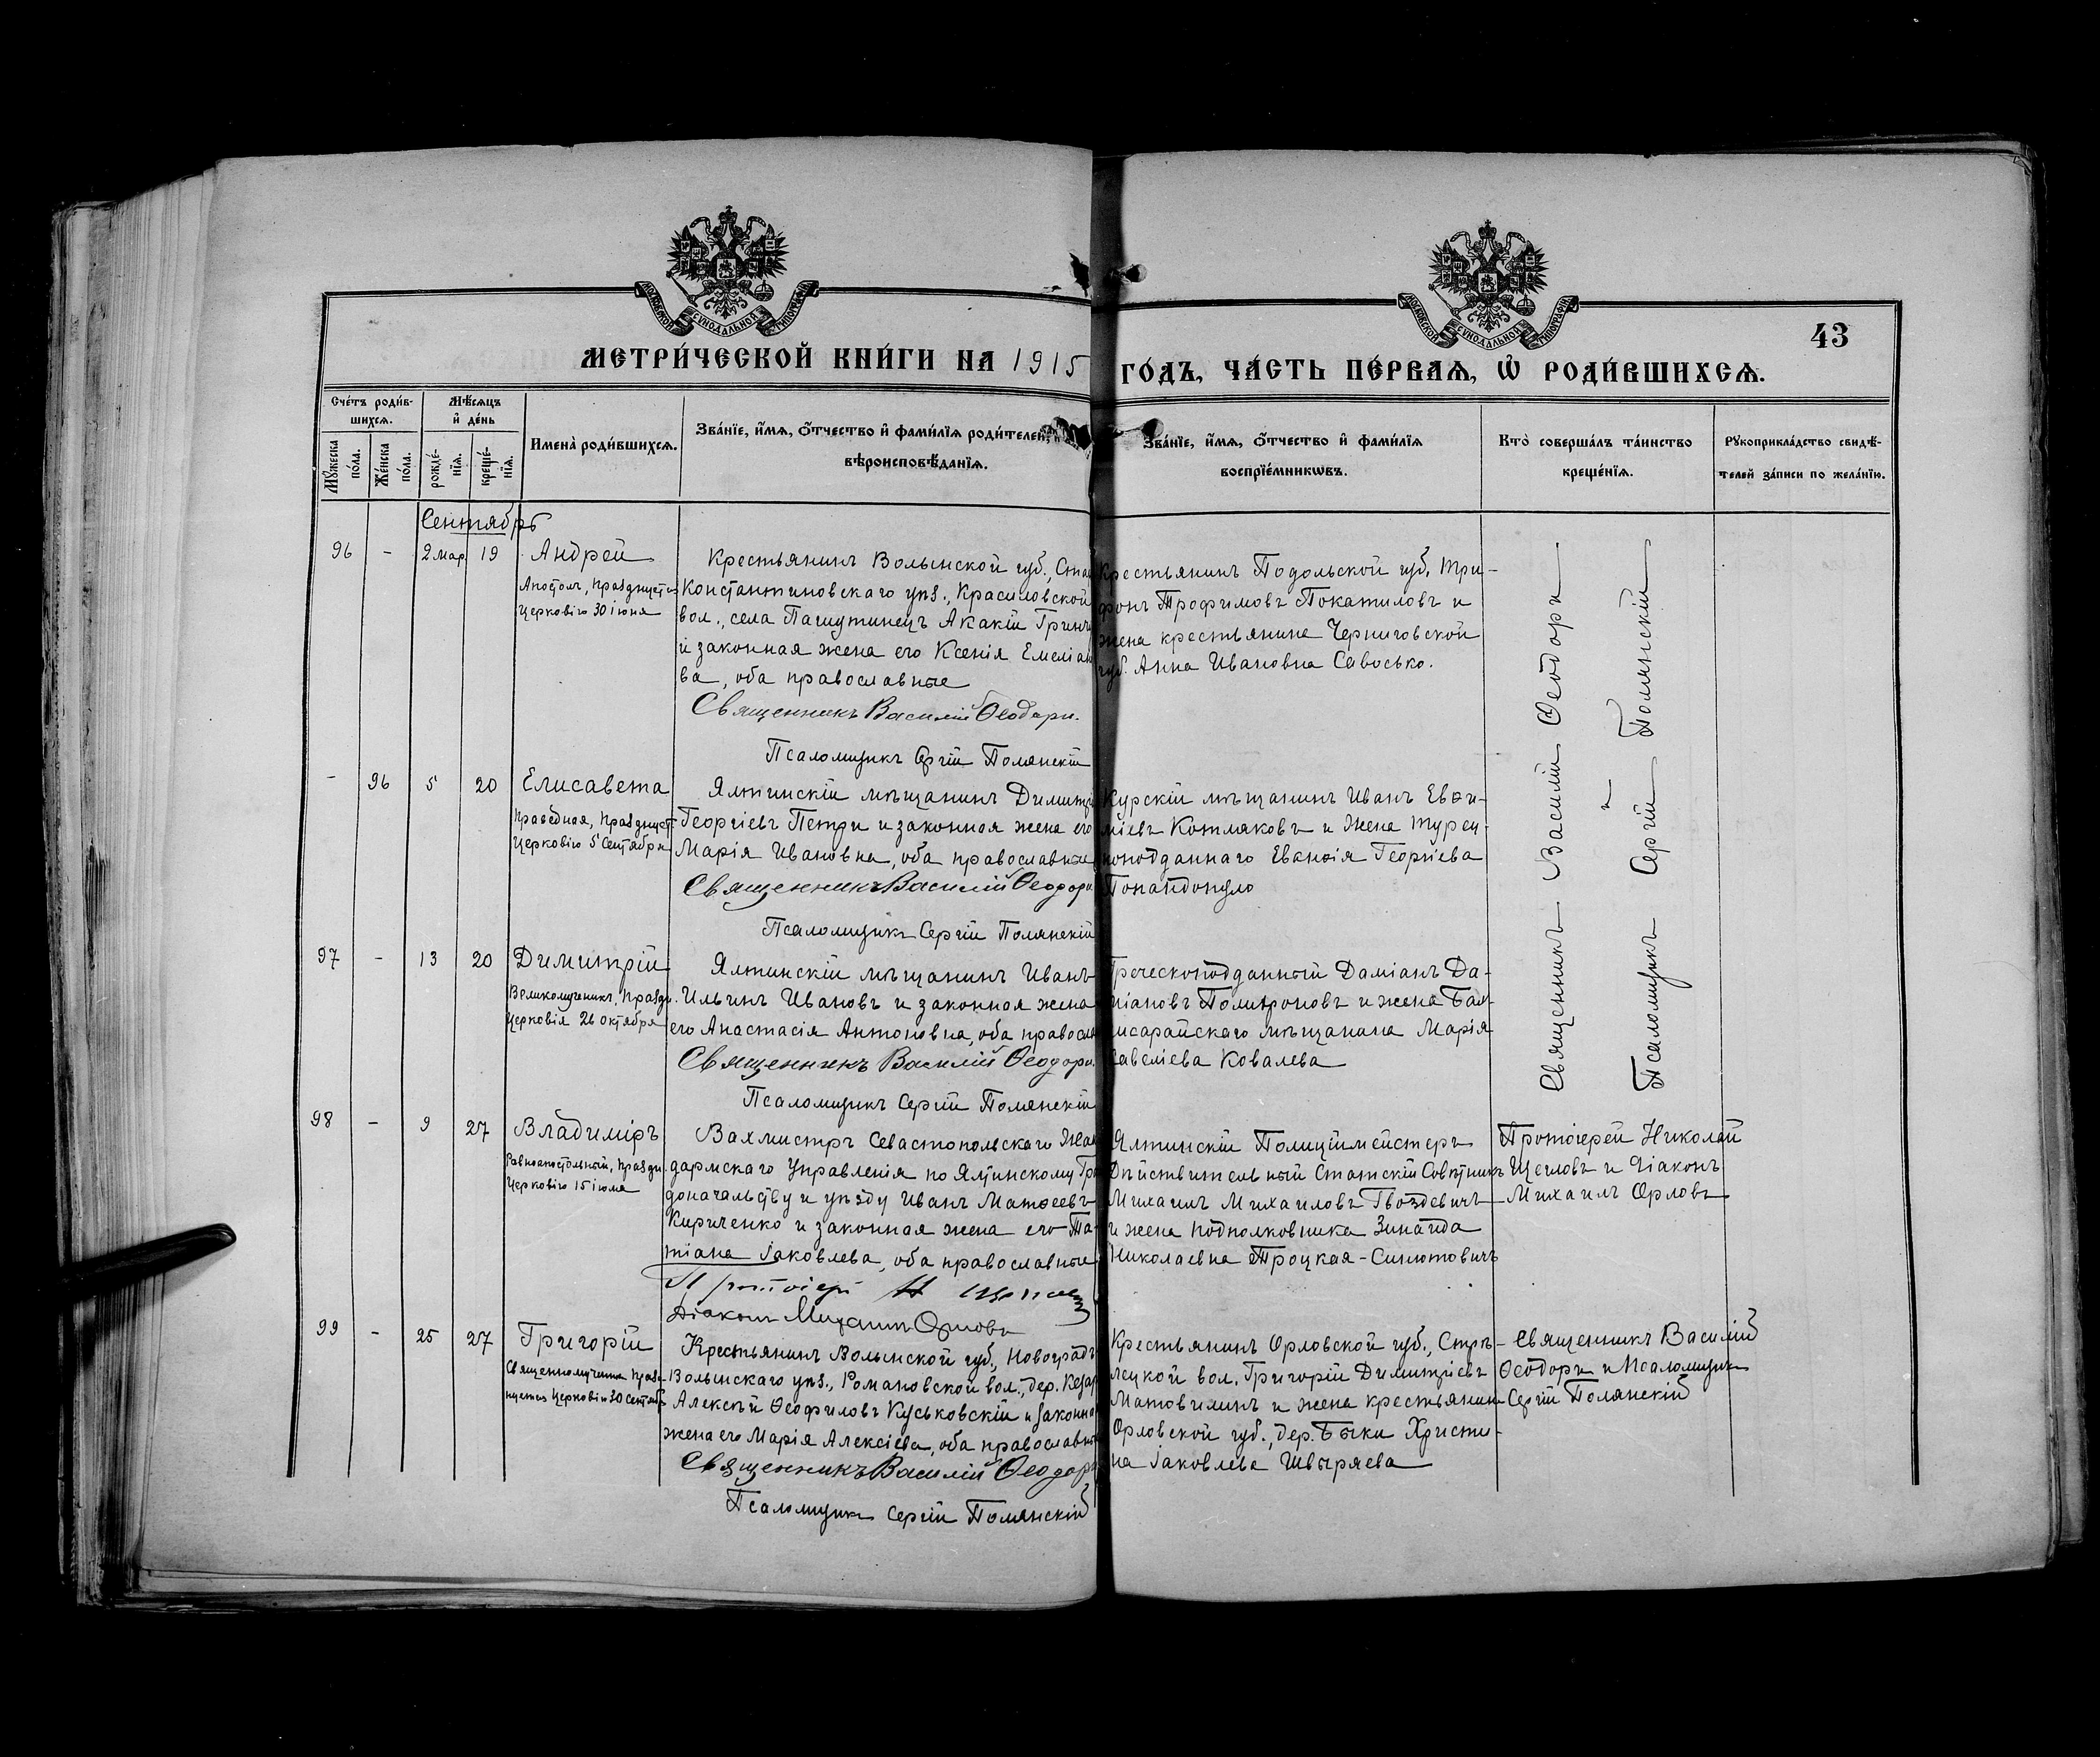 МОСКОВСКОЙ СУНОДАЛЬНОЙ ТИПОГРАФІИ
МОСКОВСКОЙ СУНОДАЛЬНОЙ ТИПОГРАФІИ
43
МЕТРИ́ЧЕСКОЙ КНИ́ГИ НА 1915 ГО́ДЪ, ЧА́СТЬ ПЕ́РВАѦ, Ѡ РОДИ́ВШИХСѦ.
Сче́тъ роди́в-
шихсѧ.
Мѣ́сѧцъ
и де́нь
Мꙋжеска по́ла.
Же́нска по́ла.
рожде́-
нїѧ.
креще́-
нїѧ.
Имена̀ роди́вшихсѧ.
Зва́нїе, и́мѧ, о́тчество и фами́лїѧ роди́телей,
вѣроисповѣ́данїѧ.
Зва́нїе, и́мѧ, о́тчество и фами́лїѧ
воспрїе́мникѡвъ.
Кто̀ соверша́лъ та́инство
креще́нїѧ.
Рꙋкоприкла́дство свидѣ́-
телей за́писи по жела́нїю.
Сентябрь
96 - 2 мар. 19 Андрей
Апостолъ, празднуется
Церковію 30 іюня
Крестьянинъ Волынской губ., Ста
Константиновскаго уѣз., Красиловской
вол., села Пашутинецъ Акакій Гринч
и законная жена его Ксенія Емеліан
ва, оба православные
Священникъ Василій Ѳеодори.
Псаломщикъ Сергій Полянскій
Крестьянинъ Подольской губ. Три-
фонъ Трофимовъ Покатиловъ и
жена крестьянина Черниговской
губ. Анна Ивановна Савосько.
Священникъ Василій Ѳеодори
Псаломщикъ Сергій Полянскій
- 96 5 20 Елисавета
Праведная, празднует.
Церковію 5 Сентября
Ялтинскій мѣщанинъ Димитрі
Георгіевъ Петри и законная жена его
Марія Ивановна, оба православные
Священникъ Василій Ѳеодори
Псаломщикъ Сергій Полянскій
Курскій мѣщанинъ Иванъ Евѳи-
міевъ Котляковъ и жена турец-
коподданнаго Георгіева
Попандопуло
97 - 13 20 Димитрій
Великомученикъ, праздн.
Церковію 26 Октября
Ялтинскій мѣщанинъ Иванъ
Ильинъ Ивановъ и законная жена
его Анастасія Антоновна, оба правосла
Священникъ Василій Ѳеодори.
Псаломщикъ Сергій Полянскій
Греческоподданный Даміанъ Да-
міановъ Политроновъ и жена Бах-
чисарайскаго мѣщанина Марія
Савеліева Ковалева
98 - 9 27 Владиміръ
Равноапостольный, праздн.
Церковію 15 іюля
Вахмистръ Севастопольскаго Жан
дармскаго Управленія по Ялтинскому Гра
доначальству и уѣзду Иванъ Матѳеевъ
Кириченко и законная жена его Та-
тіана Іаковлева, оба православные
Протоіерей Н Щегловъ
Діаконъ Михаилъ Орловъ
Ялтинскій Полицiймейстеръ
Дѣйствительный Статскій Совѣтникъ
Михаилъ Михаиловъ Гвоздевичъ
и жена подполковника Зинаида
Николаевна Троцкая-Синютовичъ
Протоіерей Николай
Щегловъ и Діаконъ
Михаилъ Орловъ
99 - 25 27 Григорій
Священномученикъ празд-
нуется Церковію 30 Сентяб
Крестьянинъ Волынской губ., Новоградъ
Волынскаго уѣз., Романовской вол., дер.
Алексѣй Ѳеофиловъ Куськовскій и законна
жена его Марія Алексіева, оба православны
Священникъ Василій Ѳеодори
Псаломщикъ Сергій Полянскій
Крестьянинъ Орловской губ., Стрѣ-
лецкой вол. Григорій Димитріевъ
Матовилинъ и жена крестьянин
Орловской губ., дер. Быки Христи-
на Іаковлева Швыряева
Священникъ Василій
Ѳеодори и Псаломщикъ
Сергій Полянскій